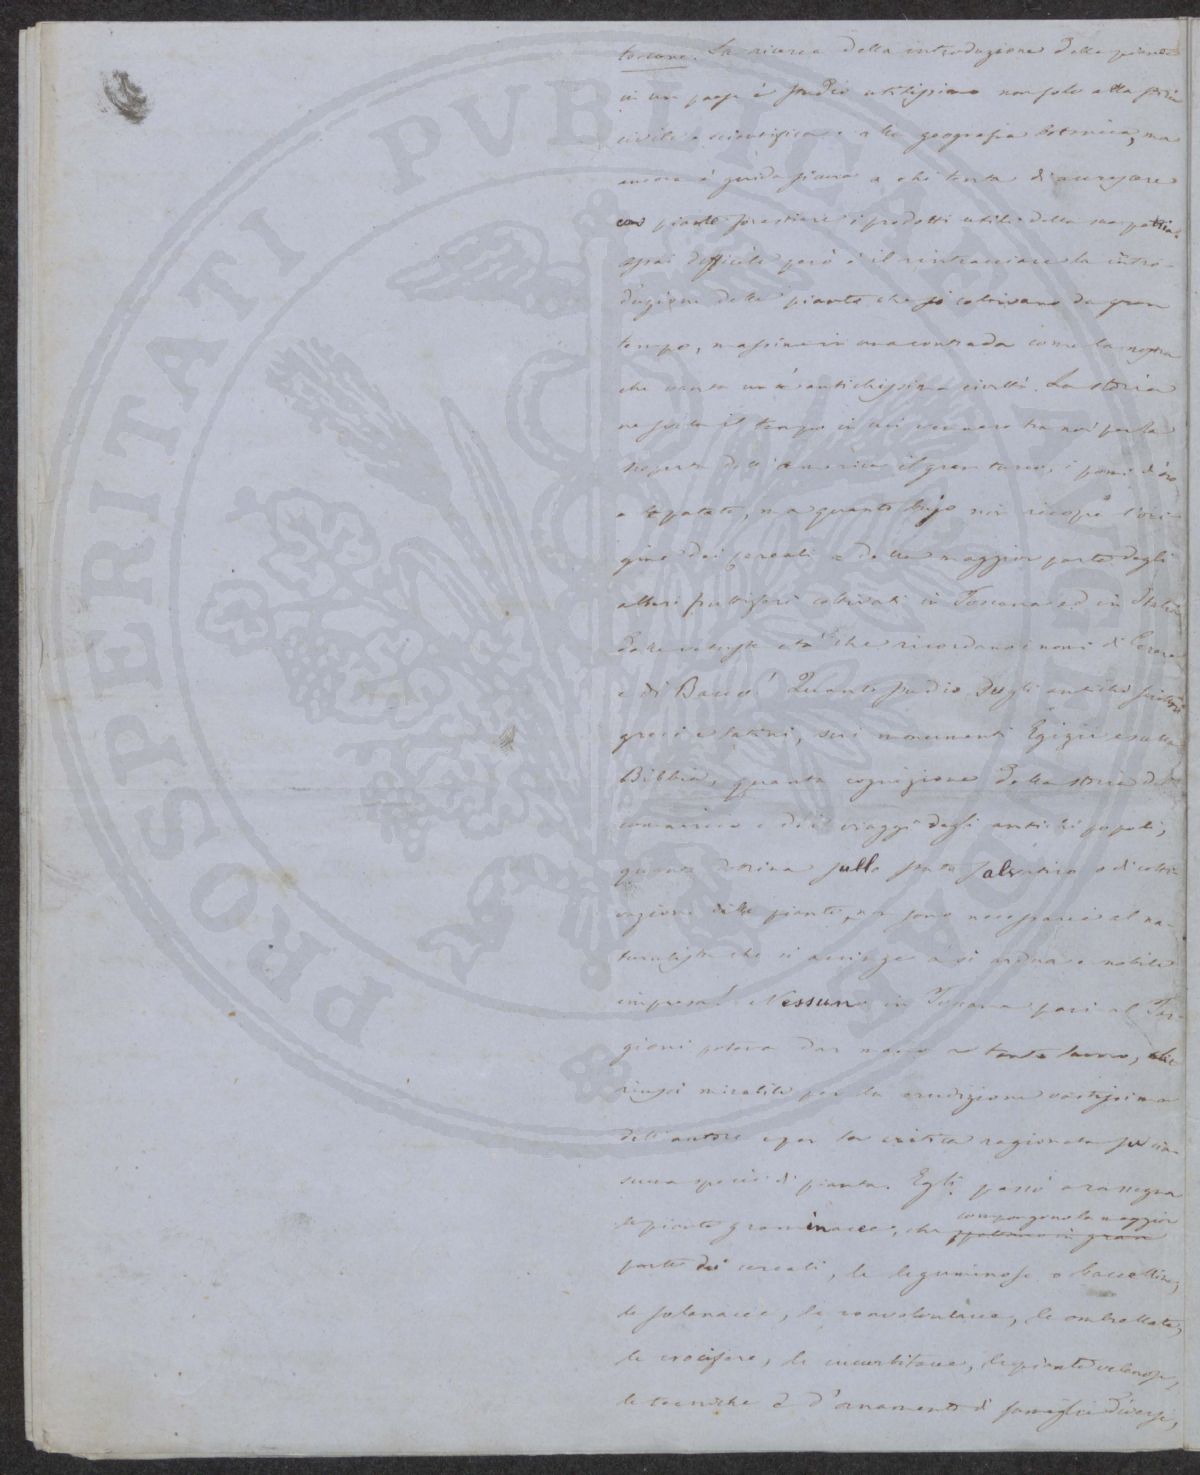 toscane. La ricerca della introduzione delle piante
in un paese è studio utilissimo non solo alla storia
civile e scientifica e alla geografia botanica, ma
ancora è guida sicura a chi tenta di accrescere
con piante forestiere i prodotti utili della sua patria.
Assai difficile però è il rintracciare la intro-
duzione delle piante che si coltivano da gran
tempo, massime in una contrada come la nostra
che vanta un'antichissima civiltà. La storia
ne svela il tempo in cui vennero tra noi per la
scoperta dell'America il gran turco, i pomi d'oro
e le patate, ma quanto bujo non ricopre l'ori-
gine dei cereali e della maggior parte degli
alberi fruttiferi coltivati in Toscana ed in Italia
dalle vetuste età che ricordano i nomi di Cerere
e di Bacco! Quanto studio sugli antichi scrittori
greci e latini, sui monumenti Egizii e sulla
Bibbia, quanta cognizione della storia del
commercio e dei viaggi degli antichi popoli,
quanta dottrina sullo stato salvatico o di colti-
vazione delle piante, non sono necessarie al na-
turalista che si accinge a sì ardua e nobile
impresa! Nessuno in Toscana pari al Tar-
gioni poteva dar mano a tanto lavoro, che
riuscì mirabile per la erudizione vastissima
dell'autore e per la critica ragionata su cia-
scuna specie di pianta. Egli passò a rassegna
le piante graminacee, che compongono la maggior
spettano in gran
parte dei cereali, le leguminose o baccelline,
le solanacee, le convolvulacee, le ombrellate,
le crocifere, le cucurbitacee, le piante velenose,
le tecniche e d'ornamento di famiglie diverse,
PROSPERITATI PVBLICAE AVGENDAE